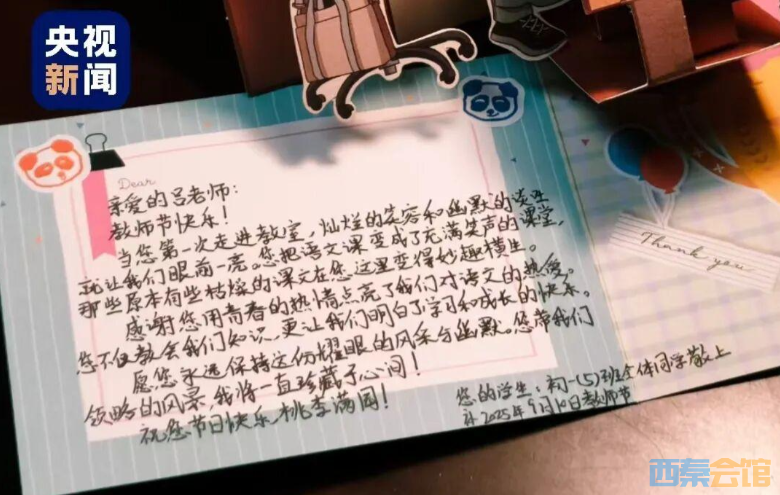 央视
新闻
Dear
亲爱的吕老师：
教师节快乐！
当您第一次走进教室，灿烂的笑容和幽默的谈吐
就让我们眼前一亮。您把语文课变成了充满笑声的课堂，
那些原本有些枯燥的课文在您这里变得妙趣横生。
感谢您用青春的热情点亮了我们对语文的热爱。
您不仅教会我们知识，更让我们明白了学习和成长的快乐。
愿您永远保持这份耀眼的风采与幽默。您带我们
领略的风景，我将一直珍藏于心间！
祝您节日快乐，桃李满园！
您的学生：初一(5)班全体同学敬上
于2025年9月10日教师节
Thank you
西秦会馆